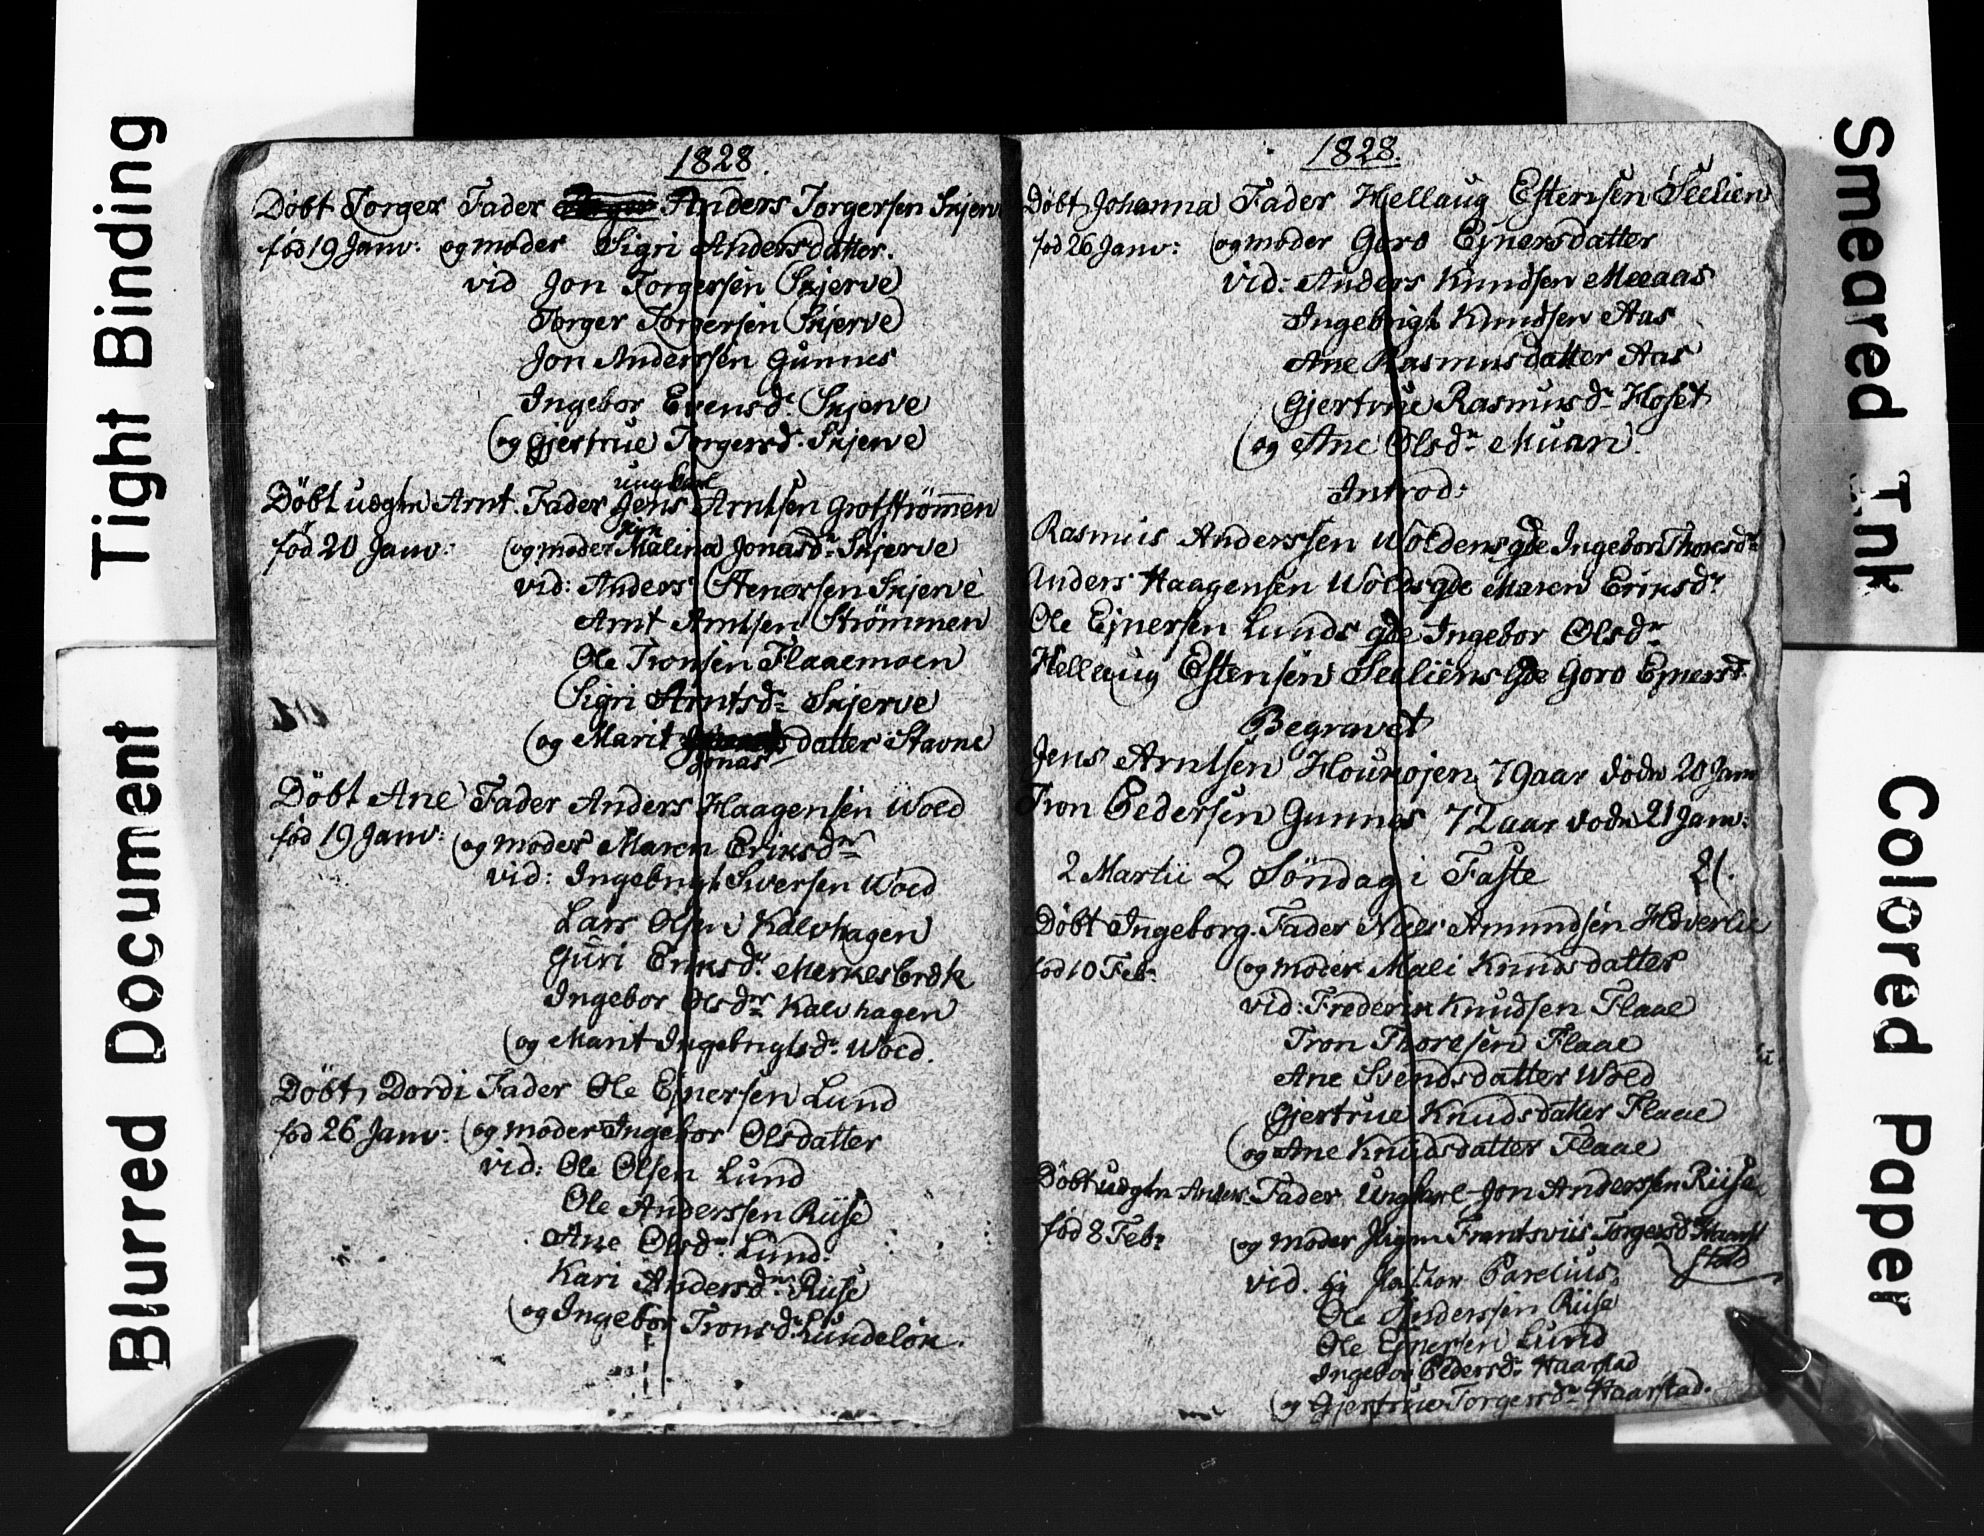 Tight Binding
Blurred Document
1828.
Döbt Torger Fader Anders Torgersen Skjerv
fød 19 Janv: og moder Sigri Andersdatter.
vid Jon Torgersen Skjerve
Torger Torgersen Skjerve
Jon Anderssen Gunnes
Ingebor Evensdr. Skjerve
og Gjertrue Torgersdr. Skjerve
ungkarl
Döbt uægtn Arnt. Fader Jens Arntsen Grotströmmen
fød 20 Janv: og moder Malina Jonasdr. Skjerve
vid: Anders Stenersen Skjerve
Arnt Arntsen Strömmen
Ole Tronsen Flaaemoen
Sigri Arntsdr Skjerve
og Marit datter Stavne
Jonas
Döbt Ane Fader Anders Haagensen Wold
fød 19 Janv: og moder Maren Eriksdr
vid: Ingebrigt Siversen Wold
Lars Olsen Kalvhagen
Guri Eriksdr.
Ingebor Olsdr Kalvhagen
og Marit Ingebrigtsdr. Wold.
Döbt Dordi Fader Ole Ejnersen Lund
fød 26 Janv: og moder Ingebor Olsdatter
vid: Ole Olsen Lund
Ole Anderssen Riise
Ane Olsdr. Lund.
Kari Andersdr. Riise
og Ingebor Tronsdr. Lundeløk.
1828.
Döbt Johanna Fader Hellaug Estensen Seelien
fød 26 Janv: og moder Goro Ejnersdatter
vid: Anders Knudsen Meeaas
Ingebrigt Knudsen Aas
Ane Rasmusdatter Aas
Gjertrue Rasmusdr Hoset
og Ane Olsdr Muan.
Introd:
Rasmus Anderssen Woldens gde Ingebor Thoresdr
Anders Haagensen Wolds gde Maren Eriksdr
Ole Ejnersen Lunds gde Ingebor Olsdr
Hellaug Estensen Seeliens gde Goro Ejnersd.
Begravet
Jens Arntsen 79 aar döde 20 Janv
Tron Pedersen Gunnes 72 aar döde 21 Janv:
2 Martii 2 Söndag i Faste 21.
Döbt Ingeborg. Fader Niels Amundsen Hoverlie
fød 10 Feb: og moder Mali Knudsdatter
vid: Frederik Knudsen Flaae
Tron Thoresen Flaae
Ane Svendsdatter Wold
Gjertrue Knudsdatter Flaae
og Ane Knudsdatter Flaae
Döbt uægtn Anders. Fader Ungkarl Jon Anderssen Riise
fød 8 Feb: og moder Pigen Torgersdr Haar
stad
vid. Hr Pastor Parelius
Ole Anderssen Riise
Ole Ejnersen Lund
Ingebor Pedersdr Haarstad
og Gjertrue Torgersdr Haarstad.
Smeared Ink
Colored Paper